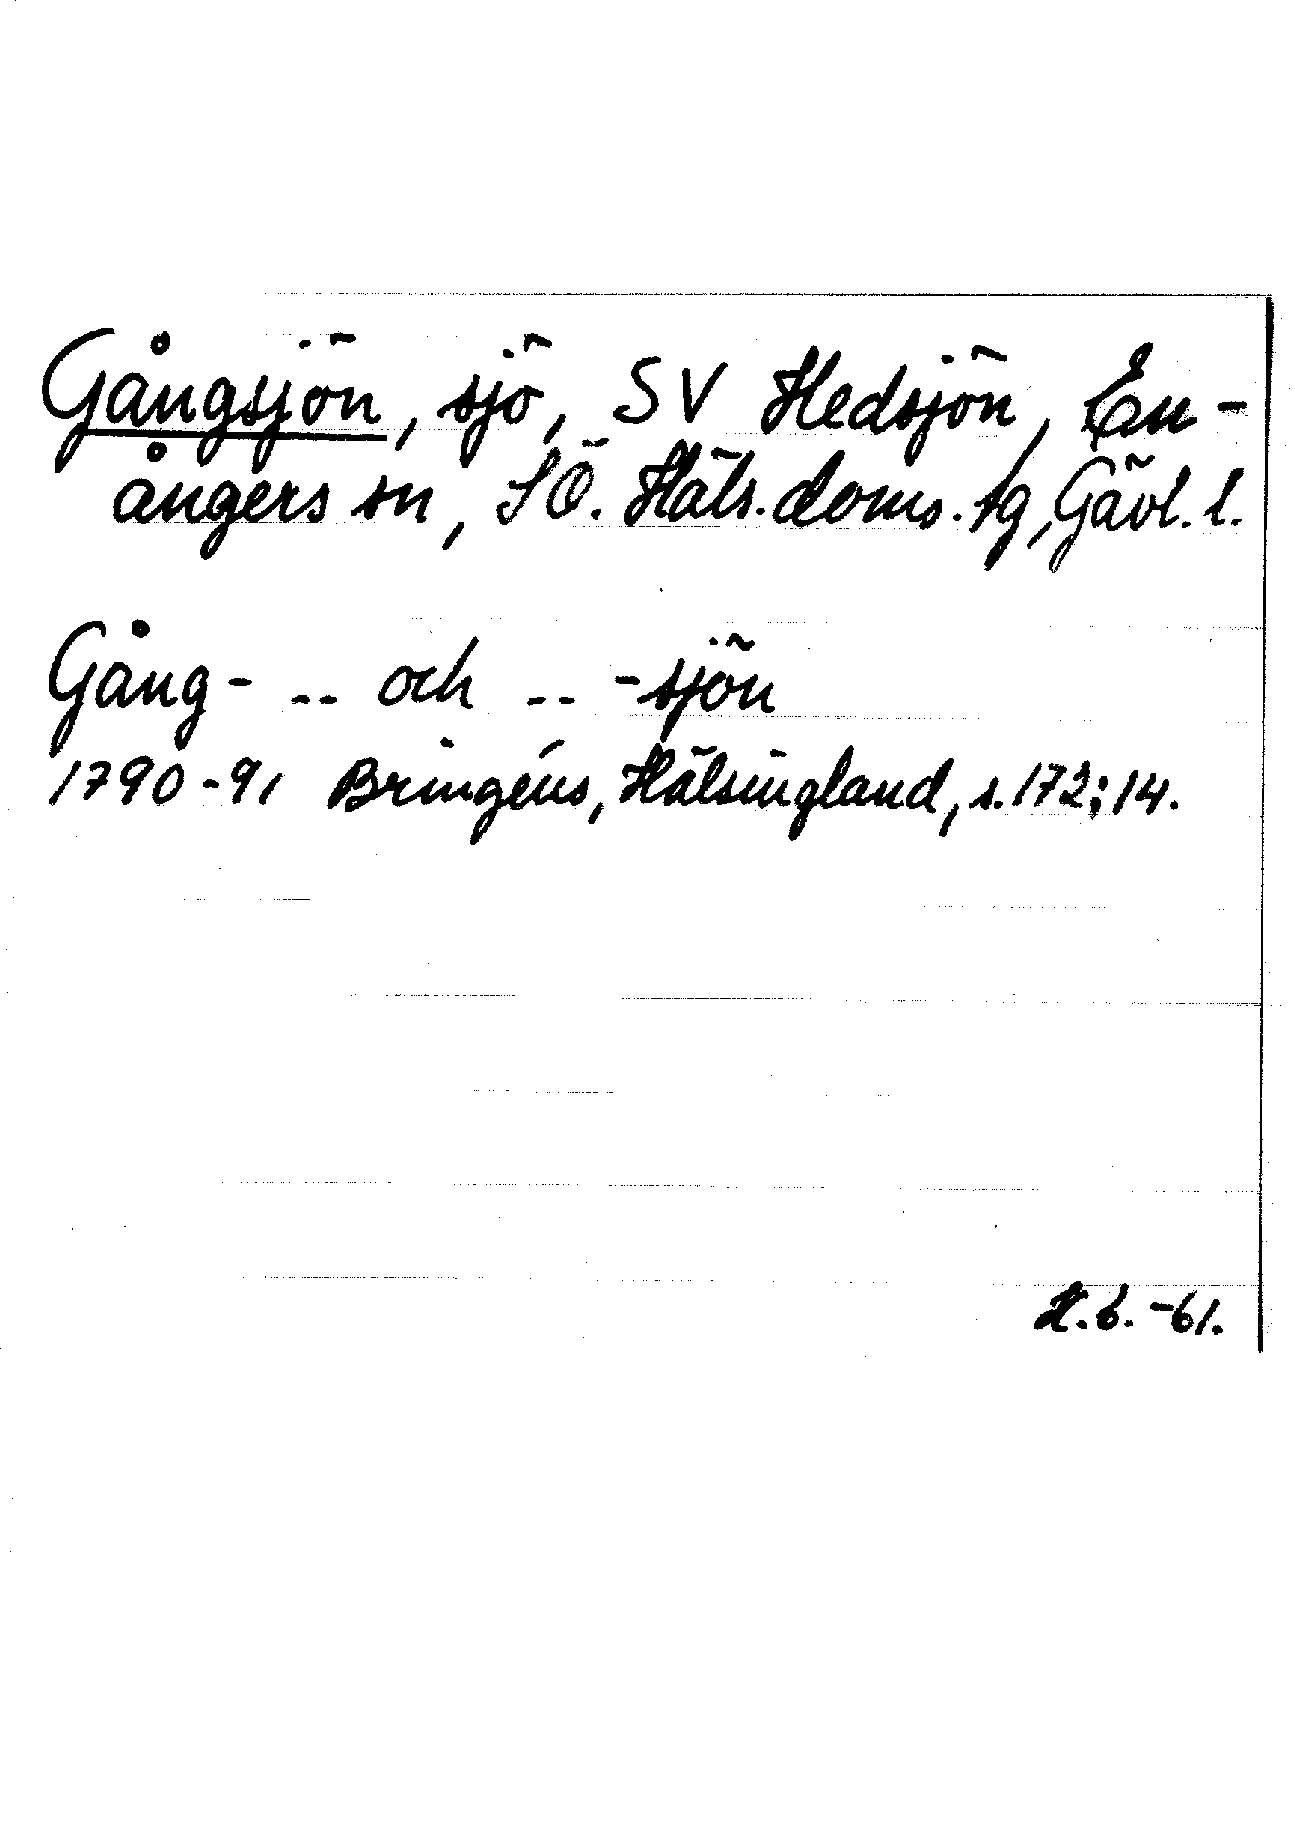 Gångsjön, sjö, SV Hedsjön, En-
ångers sn, SÖ. Häls. doms. tg, Gävl. l.
Gång- -- och -- -sjön
1790-91 Bringéus, Hälsingland, s. 172; 14.
H. b. -61.